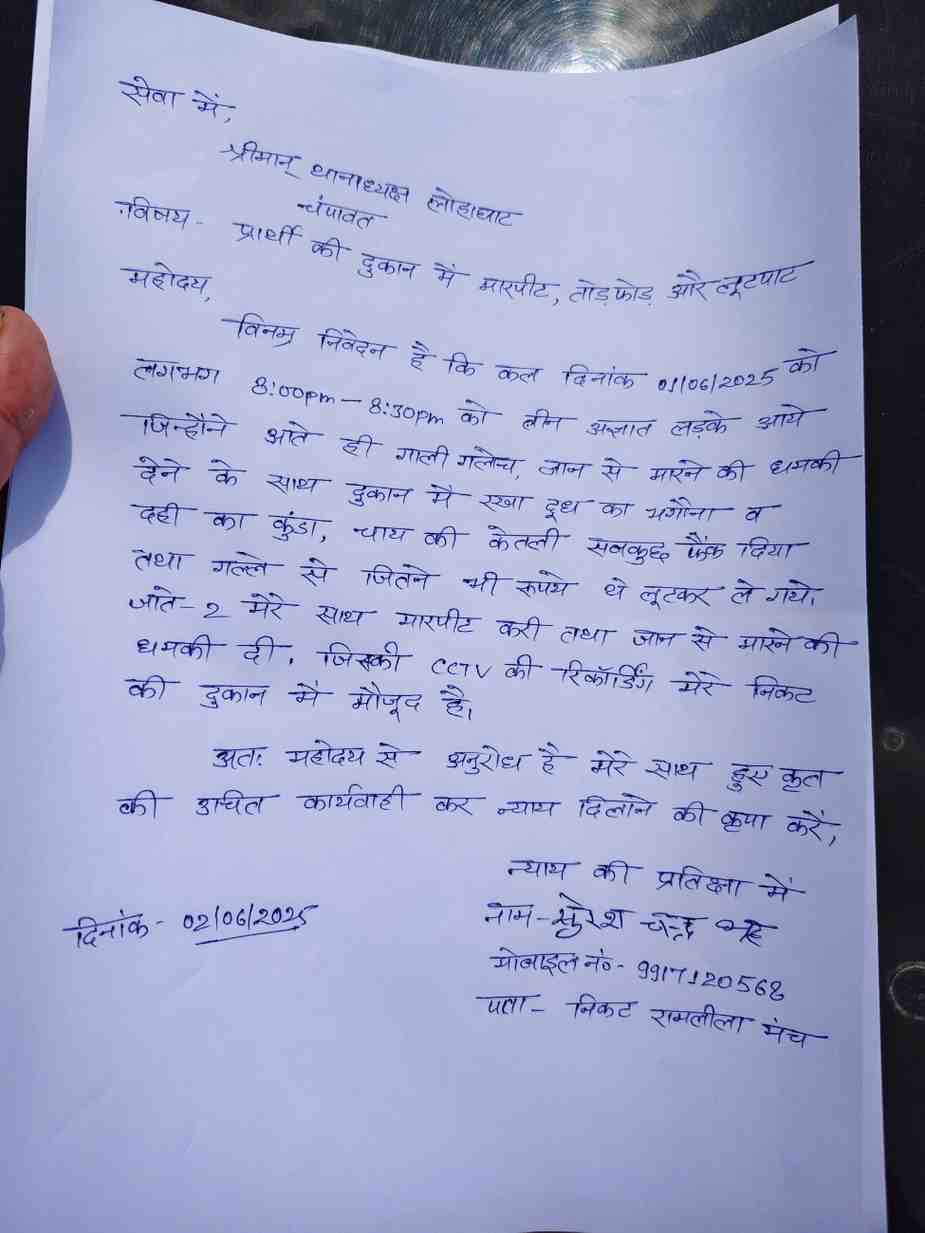 सेवा में,
श्रीमान् थानाध्यक्ष लोहाघाट
चंपावत
विषय- प्रार्थी की दुकान में मारपीट, तोड़फोड़ और लूटपाट
महोदय,
विनम्र निवेदन है कि कल दिनांक 01/06/2025 को
लगभग 8:00pm - 8:30pm को तीन अज्ञात लड़के आये
जिन्होंने आते ही गाली गलोच, जान से मारने की धमकी
देने के साथ दुकान में रखा दूध का भगौना व
दही का कुंडा, चाय की केतली सबकुछ फैंक दिया
तथा गल्ले से जितने भी रूपये थे लूटकर ले गये।
जाते-2 मेरे साथ मारपीट करी तथा जान से मारने की
धमकी दी, जिसकी CCTV की रिकॉर्डिंग मेरे निकट
की दुकान में मौजूद है।
अतः महोदय से अनुरोध है मेरे साथ हुए कृत
की उचित कार्यवाही कर न्याय दिलाने की कृपा करें,
न्याय की प्रतिक्षा में
दिनांक- 02/06/2025
नाम- सुरेश चन्द्र भट्ट
मोबाइल नं०- 9917120568
पता- निकट रामलीला मंच